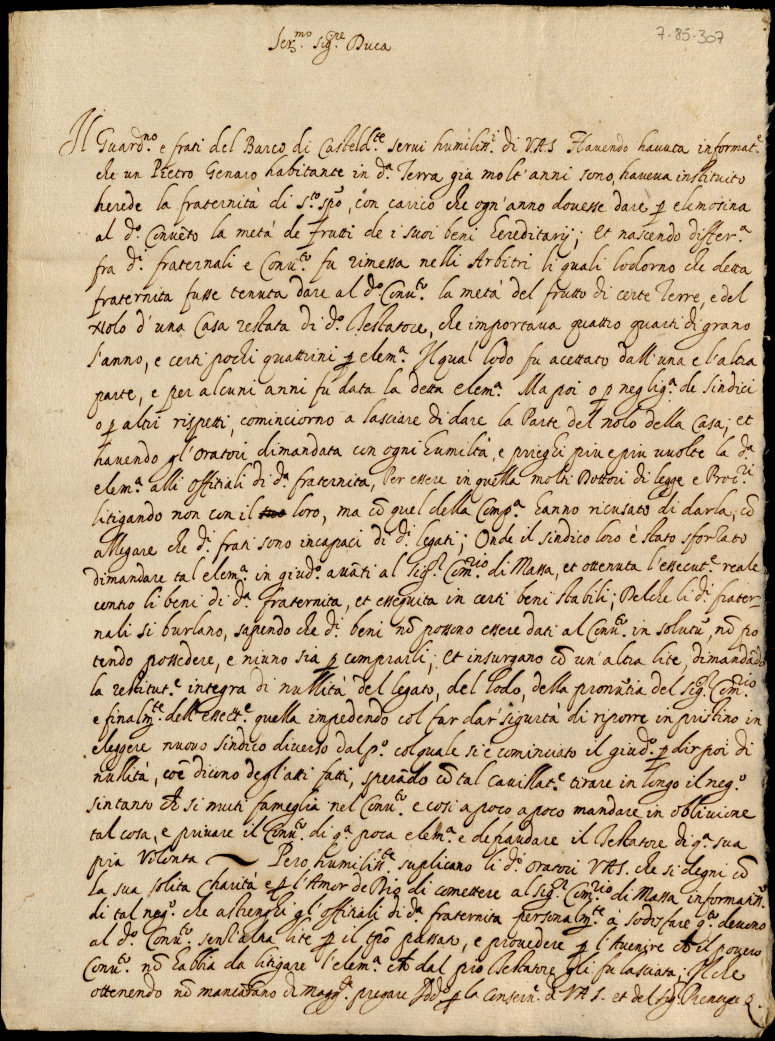 7-85-307
Ser.mo sig.re Duca
Il Guard.no e frati del Barco di Casteld.te servi humiliss.i di VAS Havendo havuta informat.e
che un Pietro Genaro habitante in d.a Terra già molt'anni sono, haveva instituito
herede la fraternità di s.to spõ, con carico che ogn'anno dovesse dare p elemosina
al d.o Convẽto la metà de frutti de i suoi beni hereditarij; Et nascendo differ.a
fra d.i fraternali e Conv.to fu rimessa nelli Arbitri li quali lodorno che detta
fraternita fusse tenuta dare al d.o Conv.to la metà del frutto di certe Terre, e del
Nolo d'una Casa restata di d.o Testatore, che importava quattro quarti di grano
l'anno, e certi pochi quattrini p elem.a Il qual lodo fu acettato dall'una e l'altra
parte, e per alcuni anni fu data la detta elem.a Ma poi o p neglig.a de sindici
o p altri rispetti, cominciorno a lasciare di dare la Parte del nolo della Casa; et
havendo gl'oratori dimandata con ogni humiltà, e prieghi piu e piu vuolte la d.a
elem.a alli offitiali di d.a fraternita, Per essere in quella molti Dottori di legge e Proc.ri
litigando non con il loro, ma cõ quel della Comp.a hanno ricusato di darla, cõ
allegare che d.i frati sono incapaci di d.i legati; Onde il sindico loro è stato sforzato
dimandare tal elem.a in giud.o avãti al Sig.r Com.rio di Massa, et ottenuta l'essecut.e reale
contro li beni di d.a fraternita, et esseguita in certi beni stabili; Delche li d.i frater-
nali si burlano, sapendo che d.i beni nõ possono essere dati al Conv.to in solutũ, nõ po
tendo possedere, e niuno sia p comprarli; Et insurgano cõ un'altra lite, dimandãdo
la restitut.e integra di nullità del legato, del lodo, della pronũtia del sig.r Com.rio
e finalm.te dell'essect.e quella impedendo col far dar sigurtà di riporre in pristino in
eleggere nuovo sindico diverso dal p.o col quale si è cominciato il giud.o p dir poi di
nullità, coẽ dicono degl'atti fatti, sperãdo cõ tal cavillat.e tirare in longo il neg.o
sin tanto ch si muti fameglia nel Conv.to e cosi a poco a poco mandare in oblivione
tal cosa, e privare il Conv.to di q.a poca elem.a e defraudare il Testatore di q.a sua
pia Volonta — Pero humiliss.te suplicano li d.i oratori VAS. che si degni cõ
la sua solita Charità e p l'Amor de Dio di comettere al Sig.r Com.rio di Massa informatiss.o
di tal neg.o che astrenghi gl'offitiali di d.a fraternita personalm.te à sodisfare q.to devono
al d.o Conv.to senz'altra lite p il tp̃o passato, e provedere p l'Avenire ch il povero
Conv.to nõ habbia da litigare l'elem.a ch dal pio Testatore gli fu lasciata; Il che
ottenendo nõ mancarãno di magg.te pregare Iddio p la conserv.e di VAS. et del sig.r Prencipe